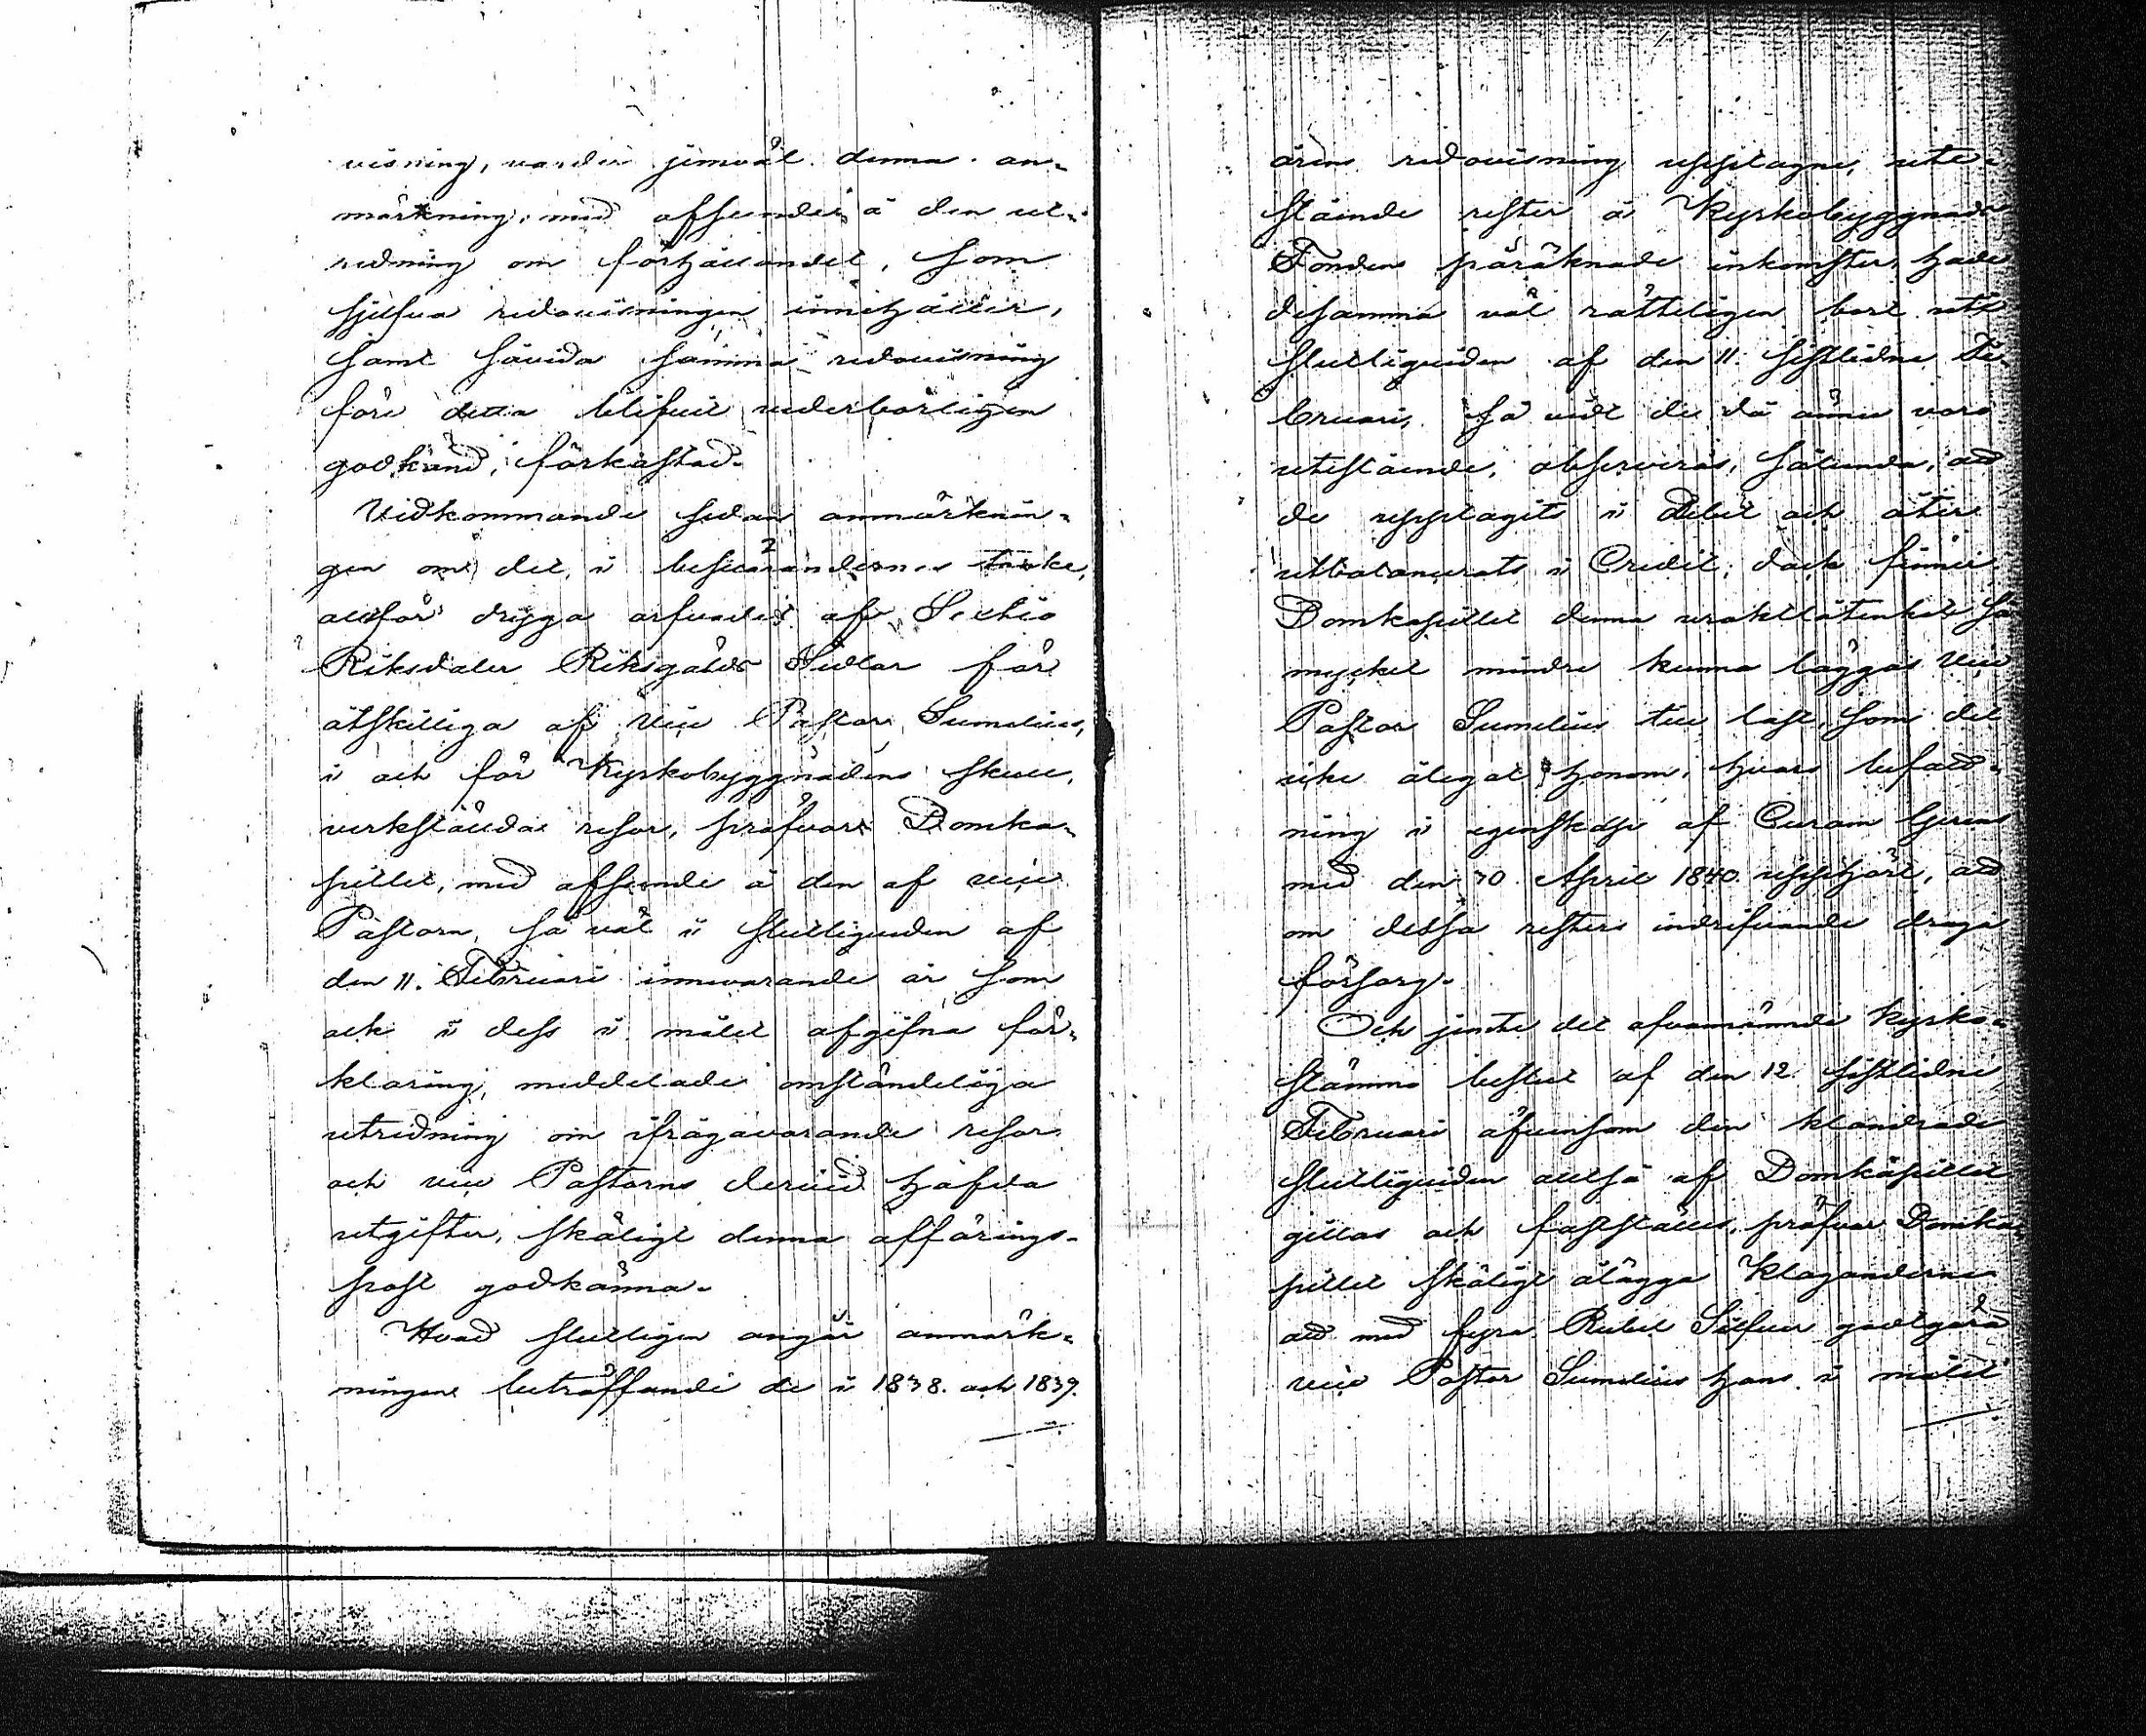 visning, varder jemväl denna an-
märkning, med afseende å den ut-
redning om förhållandet, som
sjelfva redovisningen innehåller,
samt såvida samma redovisning
före detta blifvit vederbörligen
godkänd, förkastad.
Vidkommande sedan anmärknin-
gen om det, i besvärandernes tanke,
alltför dryga arfvodet af Sextio
Riksdaler Riksgälds Sedlar för
åtskilliga af Vice Pastor Sumelius,
i och för Kyrkobyggnadens skull,
verkställda resor, pröfvar Domka-
pitlet, med afseende å den af vice
Pastorn, så väl i slutliquiden af
den 11. Februari innevarande år som
ock i dess i målet afgifna för-
klaring, meddelade omständeliga
utredning om ifrågavarande resor
och vice Pastorns dervid häfda
utgifter, skäligt denna affärings-
post godkänna.
Hvad slutligen angår anmärk-
ningen beträffande de i 1838. och 1839.
årens redovisning upptagne, ute-
stående rester å Kyrkobyggnads
Fondens påräknade inkomster, hade
desamma väl rätteligen bort uti
slutliquiden af den 11. sistlidne Fe-
bruari, så vidt de då ännu voro
utestående, observeras, sålunda, att
de upptagits i Debet och åter
utbalancerats i Credit; dock finner
Domkapitlet denna uraktlåtenhet så
mycket mindre kunna läggas Vice
Pastor Sumelius till last, som det
icke ålegat honom, hvars befatt-
ning i egenskap af Curam Gerens
med den 30. April 1840. upphört, att
om dessa resters indrifvande draga
försorg.
Och jemte det ofvannämnde kyrko-
stämmo beslut af den 12. sistlidne
Februari äfvensom den klandrade
slutliquiden alltså af Domkapitlet
gillas och fastställes, pröfvar Domka-
pitlet skäligt ålägga Klaganderne
att med fyra Rubel Silfver godtgöra
vice Pastor Sumelius hans i målet